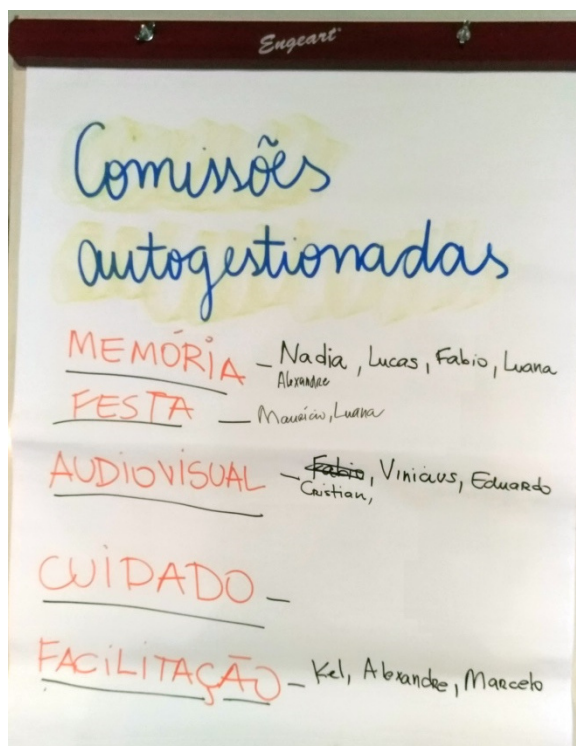 Engeart
Comissões
autogestionadas
MEMÓRIA - Nadia, Lucas, Fabio, Luana
Alexandre
FESTA - Mauricio, Luana
AUDIOVISUAL - Fabio, Vinicius, Eduardo
Cristian,
CUIDADO -
FACILITAÇÃO - Kel, Alexandre, Marcelo